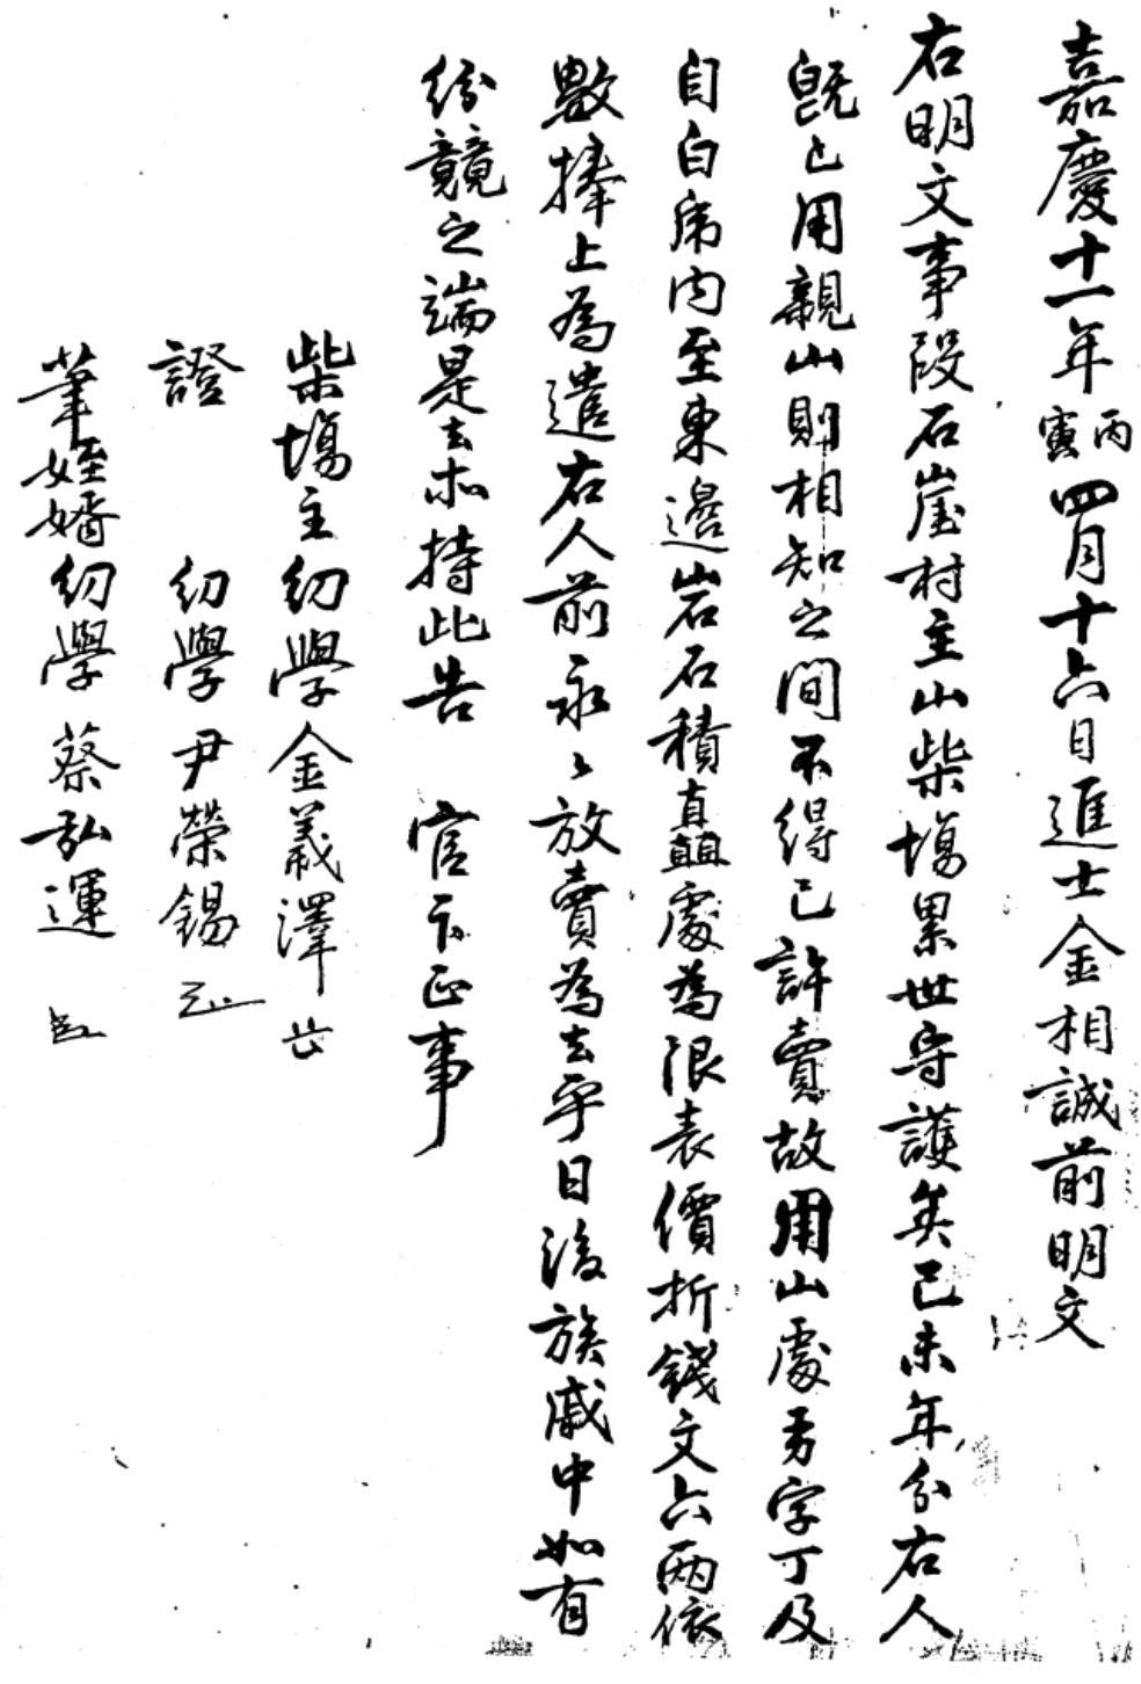 嘉慶十一年丙寅四月十六日進士金相誠前明文
右明文事段石崖村主山柴場累世守護矣己未年分右人
旣已用親山則相知之間不得已許賣故用山處靑字丁及
自白虎內至東邊岩石積矗處為限表價折錢文六兩依
數捧上為遣右人前永〻放賣為去乎日後族戚中如有
紛競之端是去末持此告 官卞正事
柴場主幼學金義澤
證 幼學尹榮錫
筆姪婿幼學蔡弘運